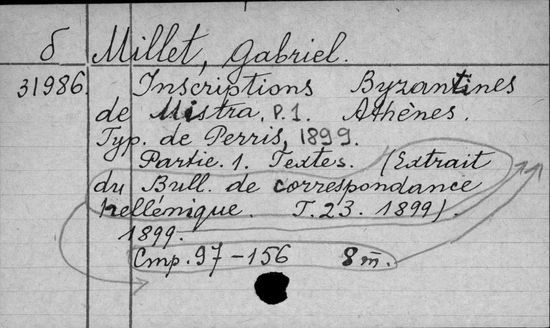 б Millet, Gabriel.
31986. Inscriptions Byzantines
de Mistra. P.1. Athènes.
Typ. de Perris, 1899.
Partie. 1. Textes. (Extrait
du Bull. de correspondance
hellénique. T.23. 1899).
1899.
Cmp. 97-156 8 m.